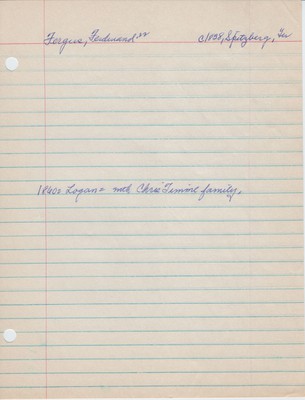 Fergus, Ferdinand c1838, Spitzberg,
1840s Logan = with Chris family.